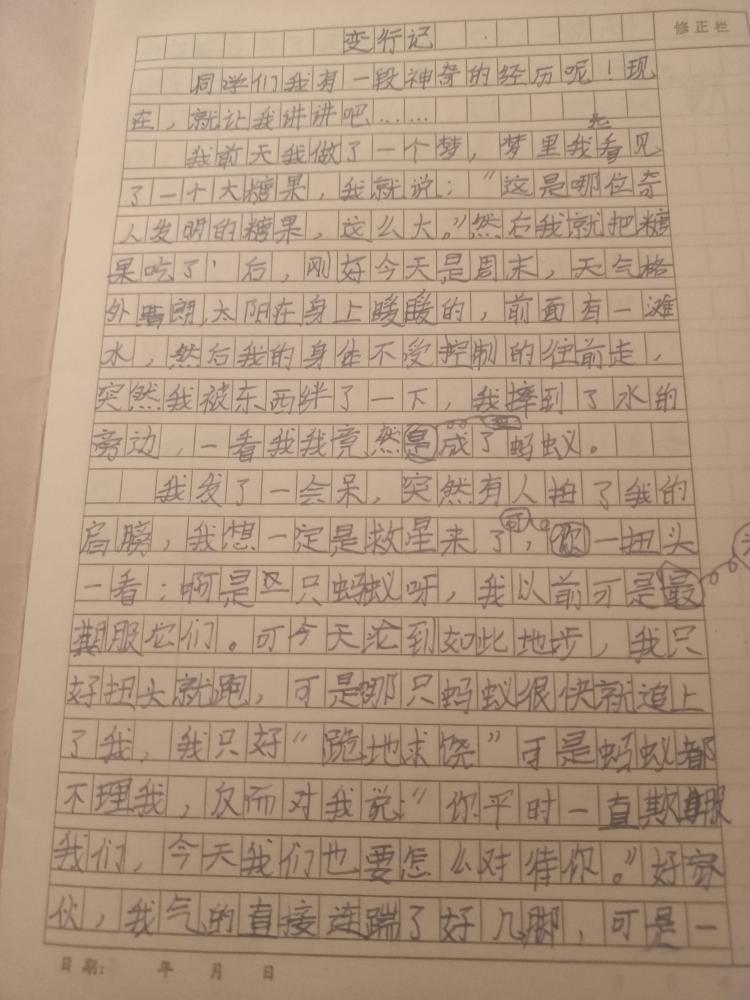 修正栏
变行记
同学们我有一段神奇的经历呢！现
在，就让我讲讲吧……
我前天我做了一个梦，梦里我看见
了一个大糖果，我就说：“这是哪位奇
人发明的糖果，这么大。”然后我就把糖
果吃了，后，刚好今天是周末，天气格
外晴朗，太阳在身上暖暖的，前面有一滩
水，然后我的身体不受控制的往前走，
突然我被东西绊了一下，我摔到了水的
旁边，一看我我竟然成了蚂蚁。
我发了一会呆，突然有人拍了我的
肩膀，我想一定是救星来了，一扭头
一看：啊是一只蚂蚁呀，我以前可是最
期服它们。可今天沦到如此地步，我只
好扭头就跑，可是那只蚂蚁很快就追上
了我，我只好“跪地求饶”可是蚂蚁都
不理我，反而对我说：“你平时一直欺服
我们，今天我们也要怎么对待你。”好家
伙，我气的直接连踹了好几脚，可是一
日期： 年 月 日